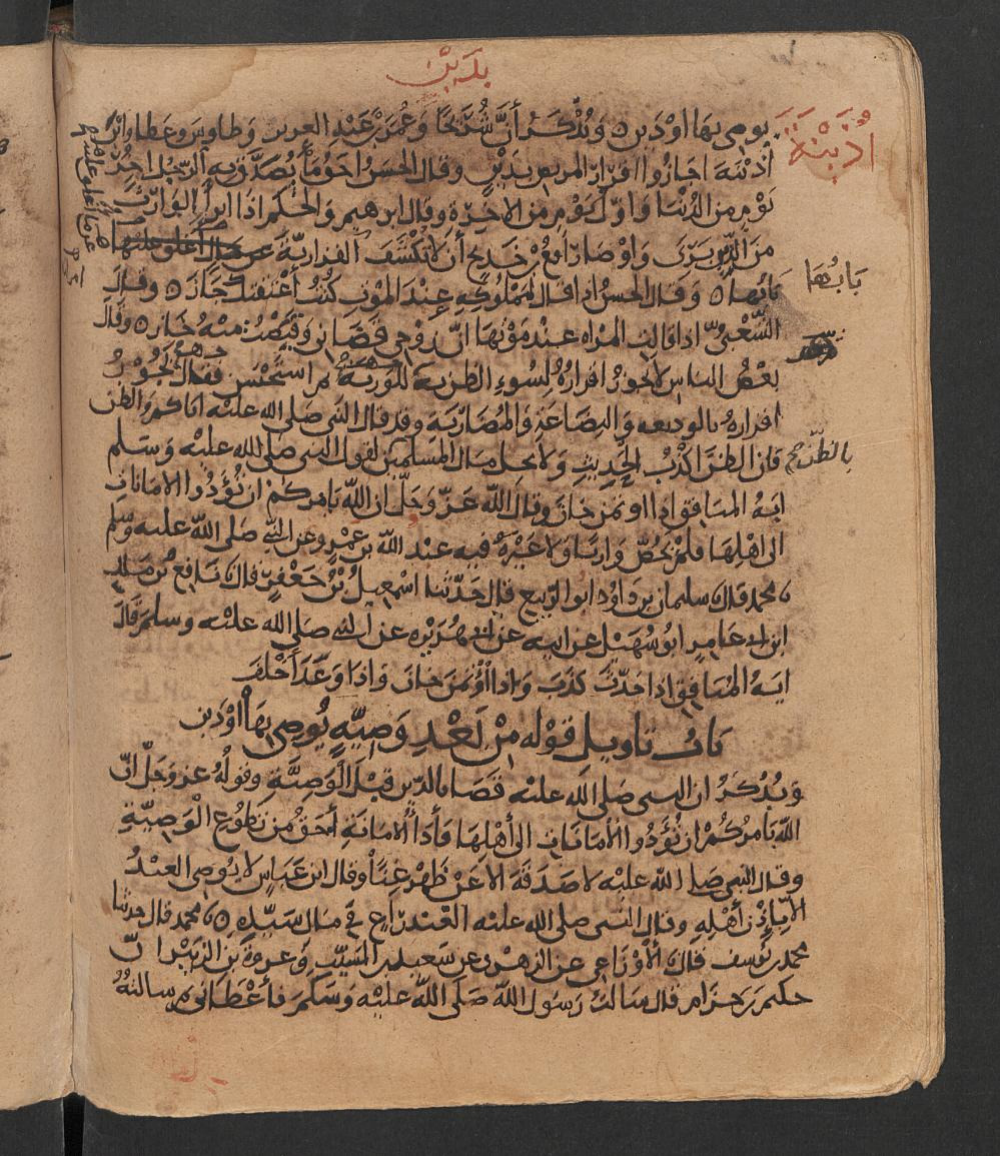 بدين
يوصى بها او دين ٥ ويذكر أنّ شُرَيحًا وعُمَرَ بْنَ عَبْدِ العزيز وطاوس وعطا وابْنَ
أُذَيْنَةَ
أُذَيْنَةَ اجازُوا اقرارَ المريض بدَيْنٍ وقال الحسن احق ما يُصَدَّق به الرّجُل اخِرُ
يَوْمٍ من الدُنْيَا وَاوّل يَوْمٍ من الاخِرَةِ وقال ابرهيم والحكم اذا ابرأ الوارِثَ
مِنَ الدَّيْن بَرِئَ وَاوْصَا رَافعُ بْنُ خَدِيج أن لا تُكْشَفَ الفزاريّة عن مال أغلق عليها
بَابُهَا ٥ وقال الحسن اذا قال لمَمْلُوكِهِ عِنْدَ المَوْتِ كُنْتُ أَعْتَقْتُكَ جَازَ ٥ وقال
بَابُهَا
الشَّعْبِىُّ اذا قالت المراه عند مَوْتهَا انّ زوجي قضاني وقَبَضْتُ منْهُ جاز ٥ وقال
بعْضُ الناس لا يجوزُ اقرارُهُ لِسُوءِ الظن به للورثة ثم استَحْسَن فقال يَجُوزُ
اقراره بالوديعه وَالبِضَاعَةِ وَالمُضَارَبَةِ وقد قال النبى صلى الله عليه اياكم والظن
فان الظنّ اكْذَبُ الحَدِيثِ وَلا يحل مال المُسلمِين لقول النبى صلى الله عليه وسلم
ايَةُ المنافق اذا اوتمن خان وقال الله عَزّ وَجَلّ ان الله يَامركمْ ان تُؤَدُّوا الامانات
الى اهْلِهَا فلم يَخُصّ وارِثًا ولا غَيْرَهُ فيه عبد الله بن عَمْرٍو عن النبي صلى الله عليه وسلم
محمد قال سليمان بن داوُد ابو الرّبيع قال حَدّثنا اسْمعيل بْنُ جَعْفَرٍ قال نافِع بْن مالك
ابن ابى عَامِرٍ ابُو سُهَيْل عن ابيه عن ابى هُرَيْرَه عن النبي صلى الله عليْه وسلم قال
ايَةُ المُنَافق اذا حَدّثَ كَذَبَ وَاذا اؤْتمنَ خانَ وَاذا وَعَدَ أَخْلَفَ
بَابُ تاويل قوْله مِنْ بَعْدِ وَصِيّه يُوصى بهَا أَوْ دَين
وَيُذْكَرُ ان النبى صلى الله عليْه قَضَا بالدّيْن قَبْلَ الوَصِيَّةِ وقولُهُ عز وجلّ انّ
الله يَامُرُكُمْ ان تُؤَدُّوا الأمَانَات الى أَهْلِهَا فأَدَا الأمَانَةِ أَحَقُّ من تَطَوُّع الْوَصِيَّةِ
وقال النبى صلى الله عليْه لا صَدَقَةَ الا عَنْ ظَهْرِ غِنًا وقال ابن عَبَاس لا يُوصى العبْدُ
الا بِاِذْن أَهْلِهِ وقال النبى صلى الله عليه العَبْدُ رَاعٍ في مَال سَيّدِهِ ٥ محمد قال حدثنا
محمد بن يُوسف قال الأَوْزَاعِي عن الزهرى عن سَعيد بن المسَيّبِ وَعروة بن الزبَيْر انّ
حكيم بن حزام قال سَالتُ رَسُول الله صَلى الله عليْه وَسَلم فأعْطَانى ثم سالتهُ